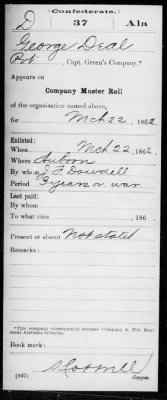 (Confederate.)
D 37 Ala
George Deal
Pvt., Capt. Green's Company.*
Appears on
Company Muster Roll
of the organization named above,
for Mch 22, 1862.
Enlisted:
When Mch 22, 1862.
Where Auborn
By whom J. F. Dowdell
Period 3 years or war
Last paid:
By whom
To what time , 186
Present or absent Not stated
Remarks:
*This company subsequently became Company A, 37th Regiment Alabama Infantry.
Book mark:
(642) Copyist.